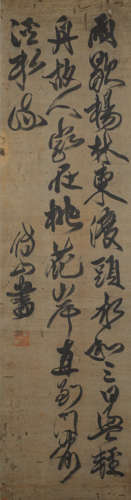 雨歇楊林東渡頭永和三日盪輕
舟故人家在桃花岸直到門前
溪水流
傅山書